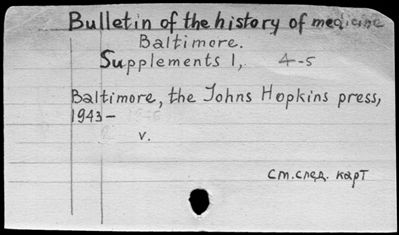 Bulletin of the history of medicine
Baltimore.
Supplements 1, 4-5
Baltimore, the Johns Hopkins press,
1943-
v.
см.след. карт